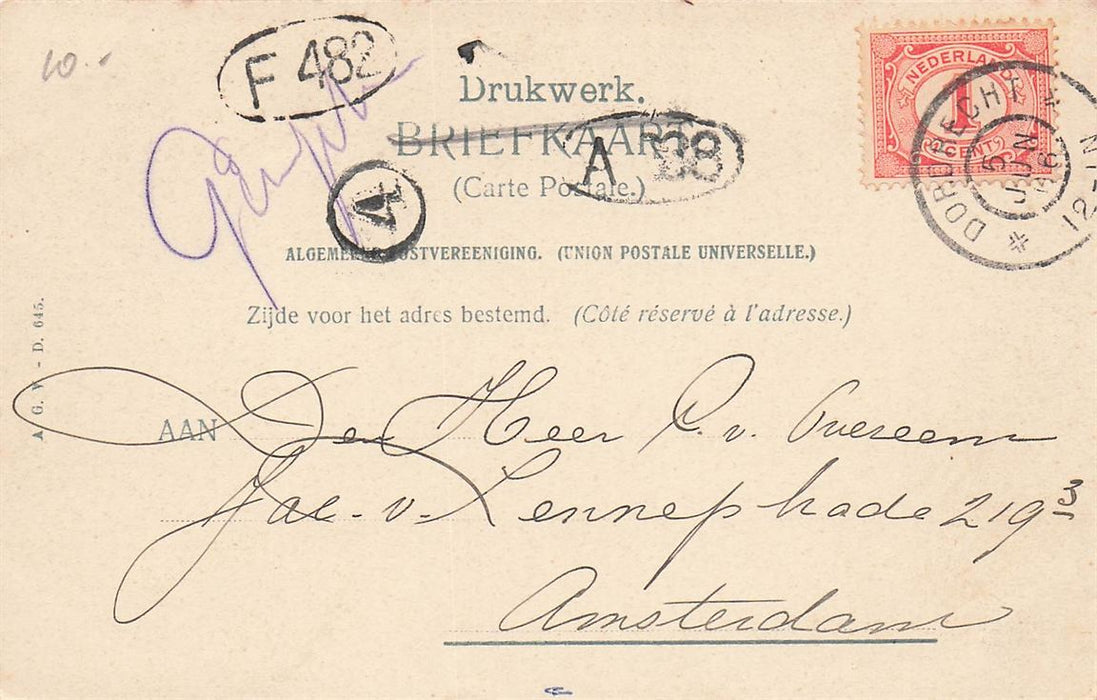 10.-
F 482
Drukwerk.
BRIEFKAART
A 38
(Carte Postale.)
4
NEDERLAND
1
CENT
DORDRECHT
5 JUN 06
12-1 N
ALGEMEENE POSTVEREENIGING. (UNION POSTALE UNIVERSELLE.)
Zijde voor het adres bestemd. (Côté réservé à l'adresse.)
A. G. V. - D. 645.
AAN Den Heer C. v. Overeem
Jac. v. Lennepkade 219 3
Amsterdam